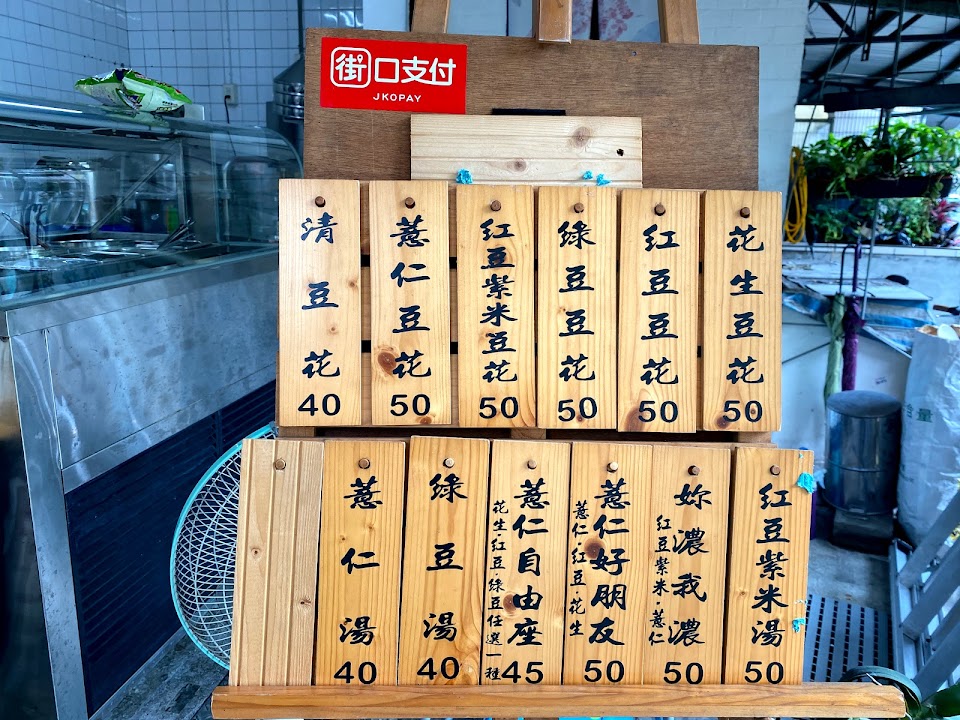 街口支付
JKOPAY
花生豆花
50
紅豆豆花
50
綠豆豆花
50
紅豆紫米豆花
50
薏仁豆花
50
清豆花
40
紅豆紫米湯
50
妳濃我濃
紅豆紫米·薏仁
50
薏仁好朋友
薏仁·紅豆·花生
50
薏仁自由座
花生·紅豆 綠豆任選一種
45
綠豆湯
40
薏仁湯
40
含量